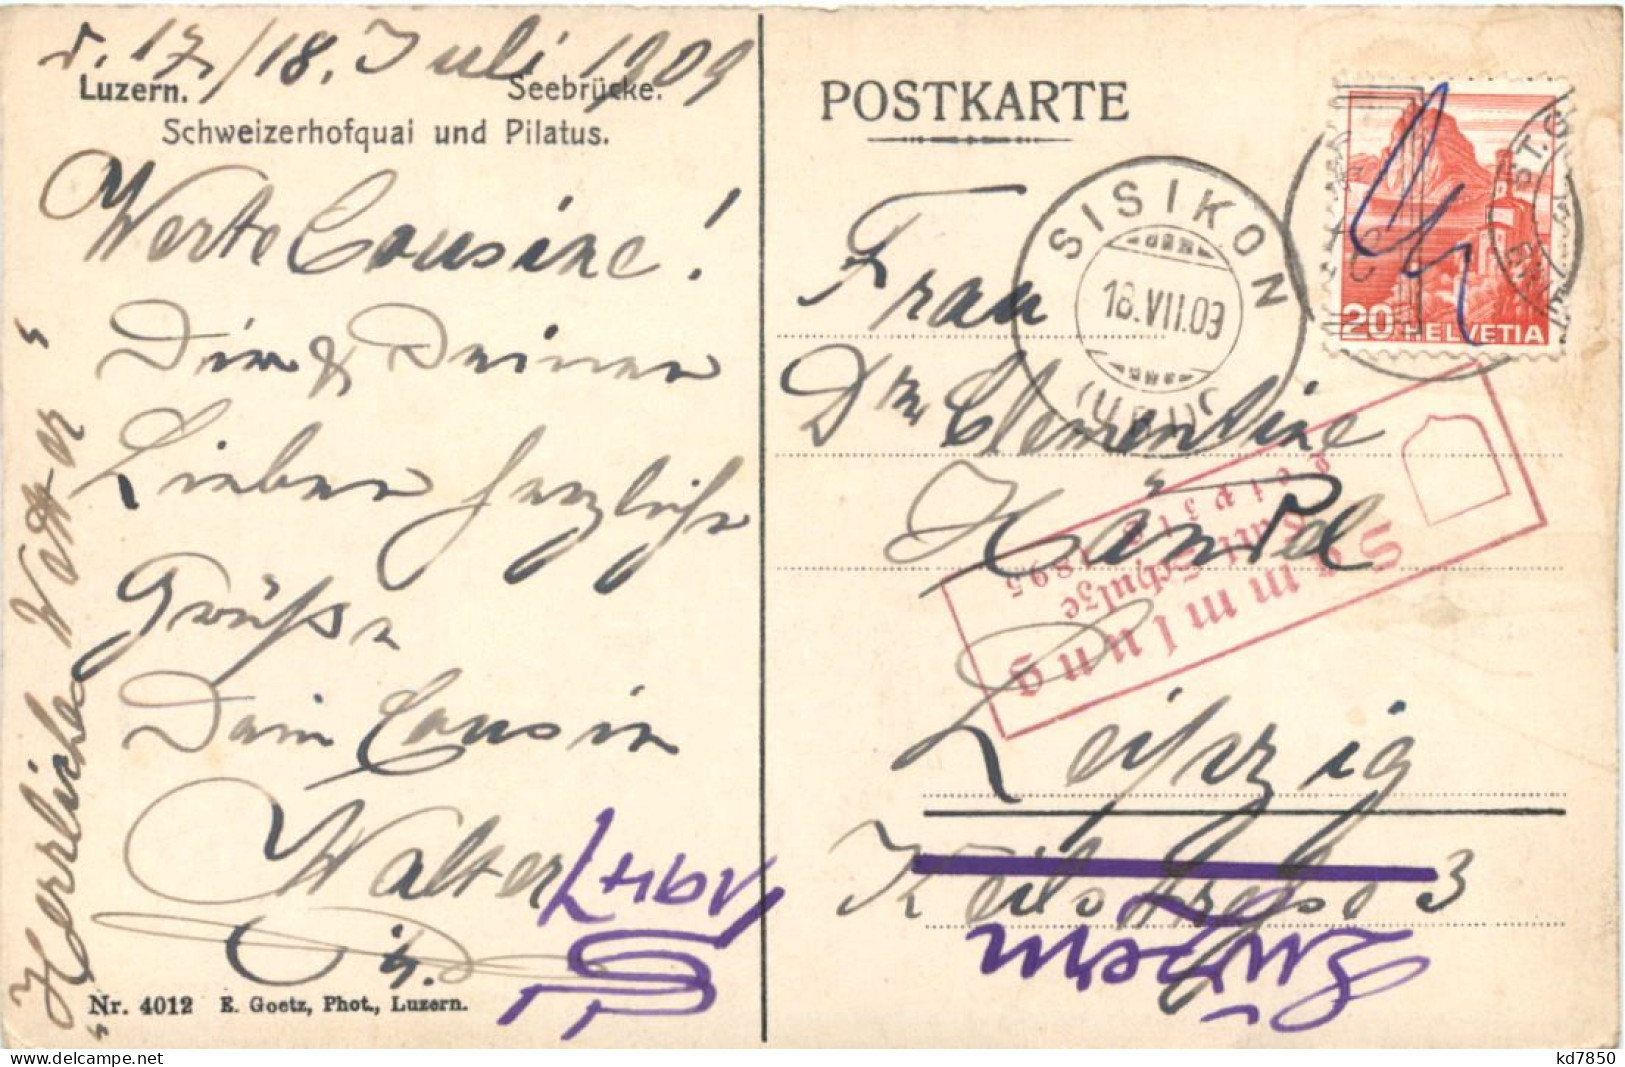 d. 17./18. Juli 1909
Luzern. Seebrücke.
Schweizerhofquai und Pilatus.
Werte Cousine!
Dir & Deinen
Lieben herzliche
Grüße
Dein Cousin
Walter
"Herrliches Wetter"
Nr. 4012 E. Goetz, Phot., Luzern.
POSTKARTE
SISIKON
18.VII.09
(URI)
20 HELVETIA
Frau
Dr. Clementine
Händel
Leipzig
Keilstraße 3
Sammlung
Schulze
1895
Luzern
kd7850